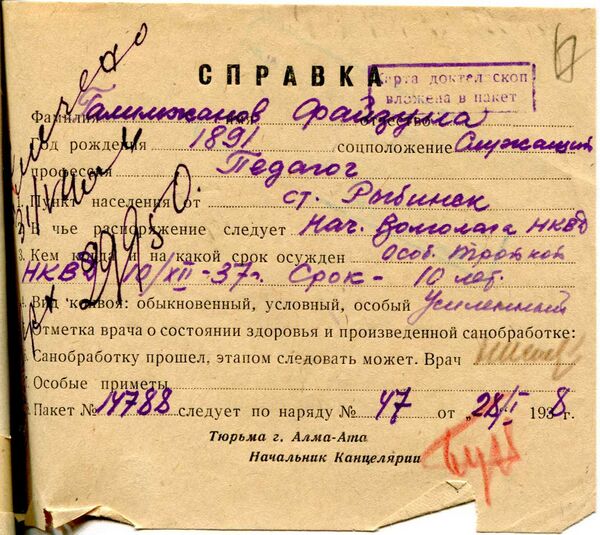 СПРАВКА
карта доктелоскоп
вложена в пакет
Фамилия имя отчество Галимжанов Файзулла
Год рождения 1891 соцположение Служащий
профессия Педагог
1. Пункт населения от ст. Рыбинск
2. В чье распоряжение следует Нач. Волголага НКВД
3. Кем когда и на какой срок осужден Особ. тройкой
НКВД 10/XII-37г. Срок - 10 лет.
4. Вид конвоя: обыкновенный, условный, особый Усиленный
Отметка врача о состоянии здоровья и произведенной санобработке:
Санобработку прошел, этапом следовать может. Врач
Особые приметы
Пакет № 14788 следует по наряду № 47 от „28/I 1938 г.
Тюрьма г. Алма-Ата
Начальник Канцелярии